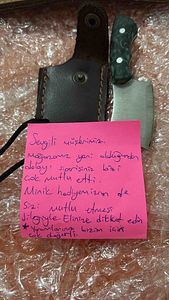 Sevgili müşterimiz.
Mağazamız yeni olduğundan
dolayı siparişiniz bizi
çok mutlu etti.
Minik hediyemizin de
sizi mutlu etmesi
dileğiyle Elinize dikkat edin
★ Yorumlarınız bizim için
çok değerli.